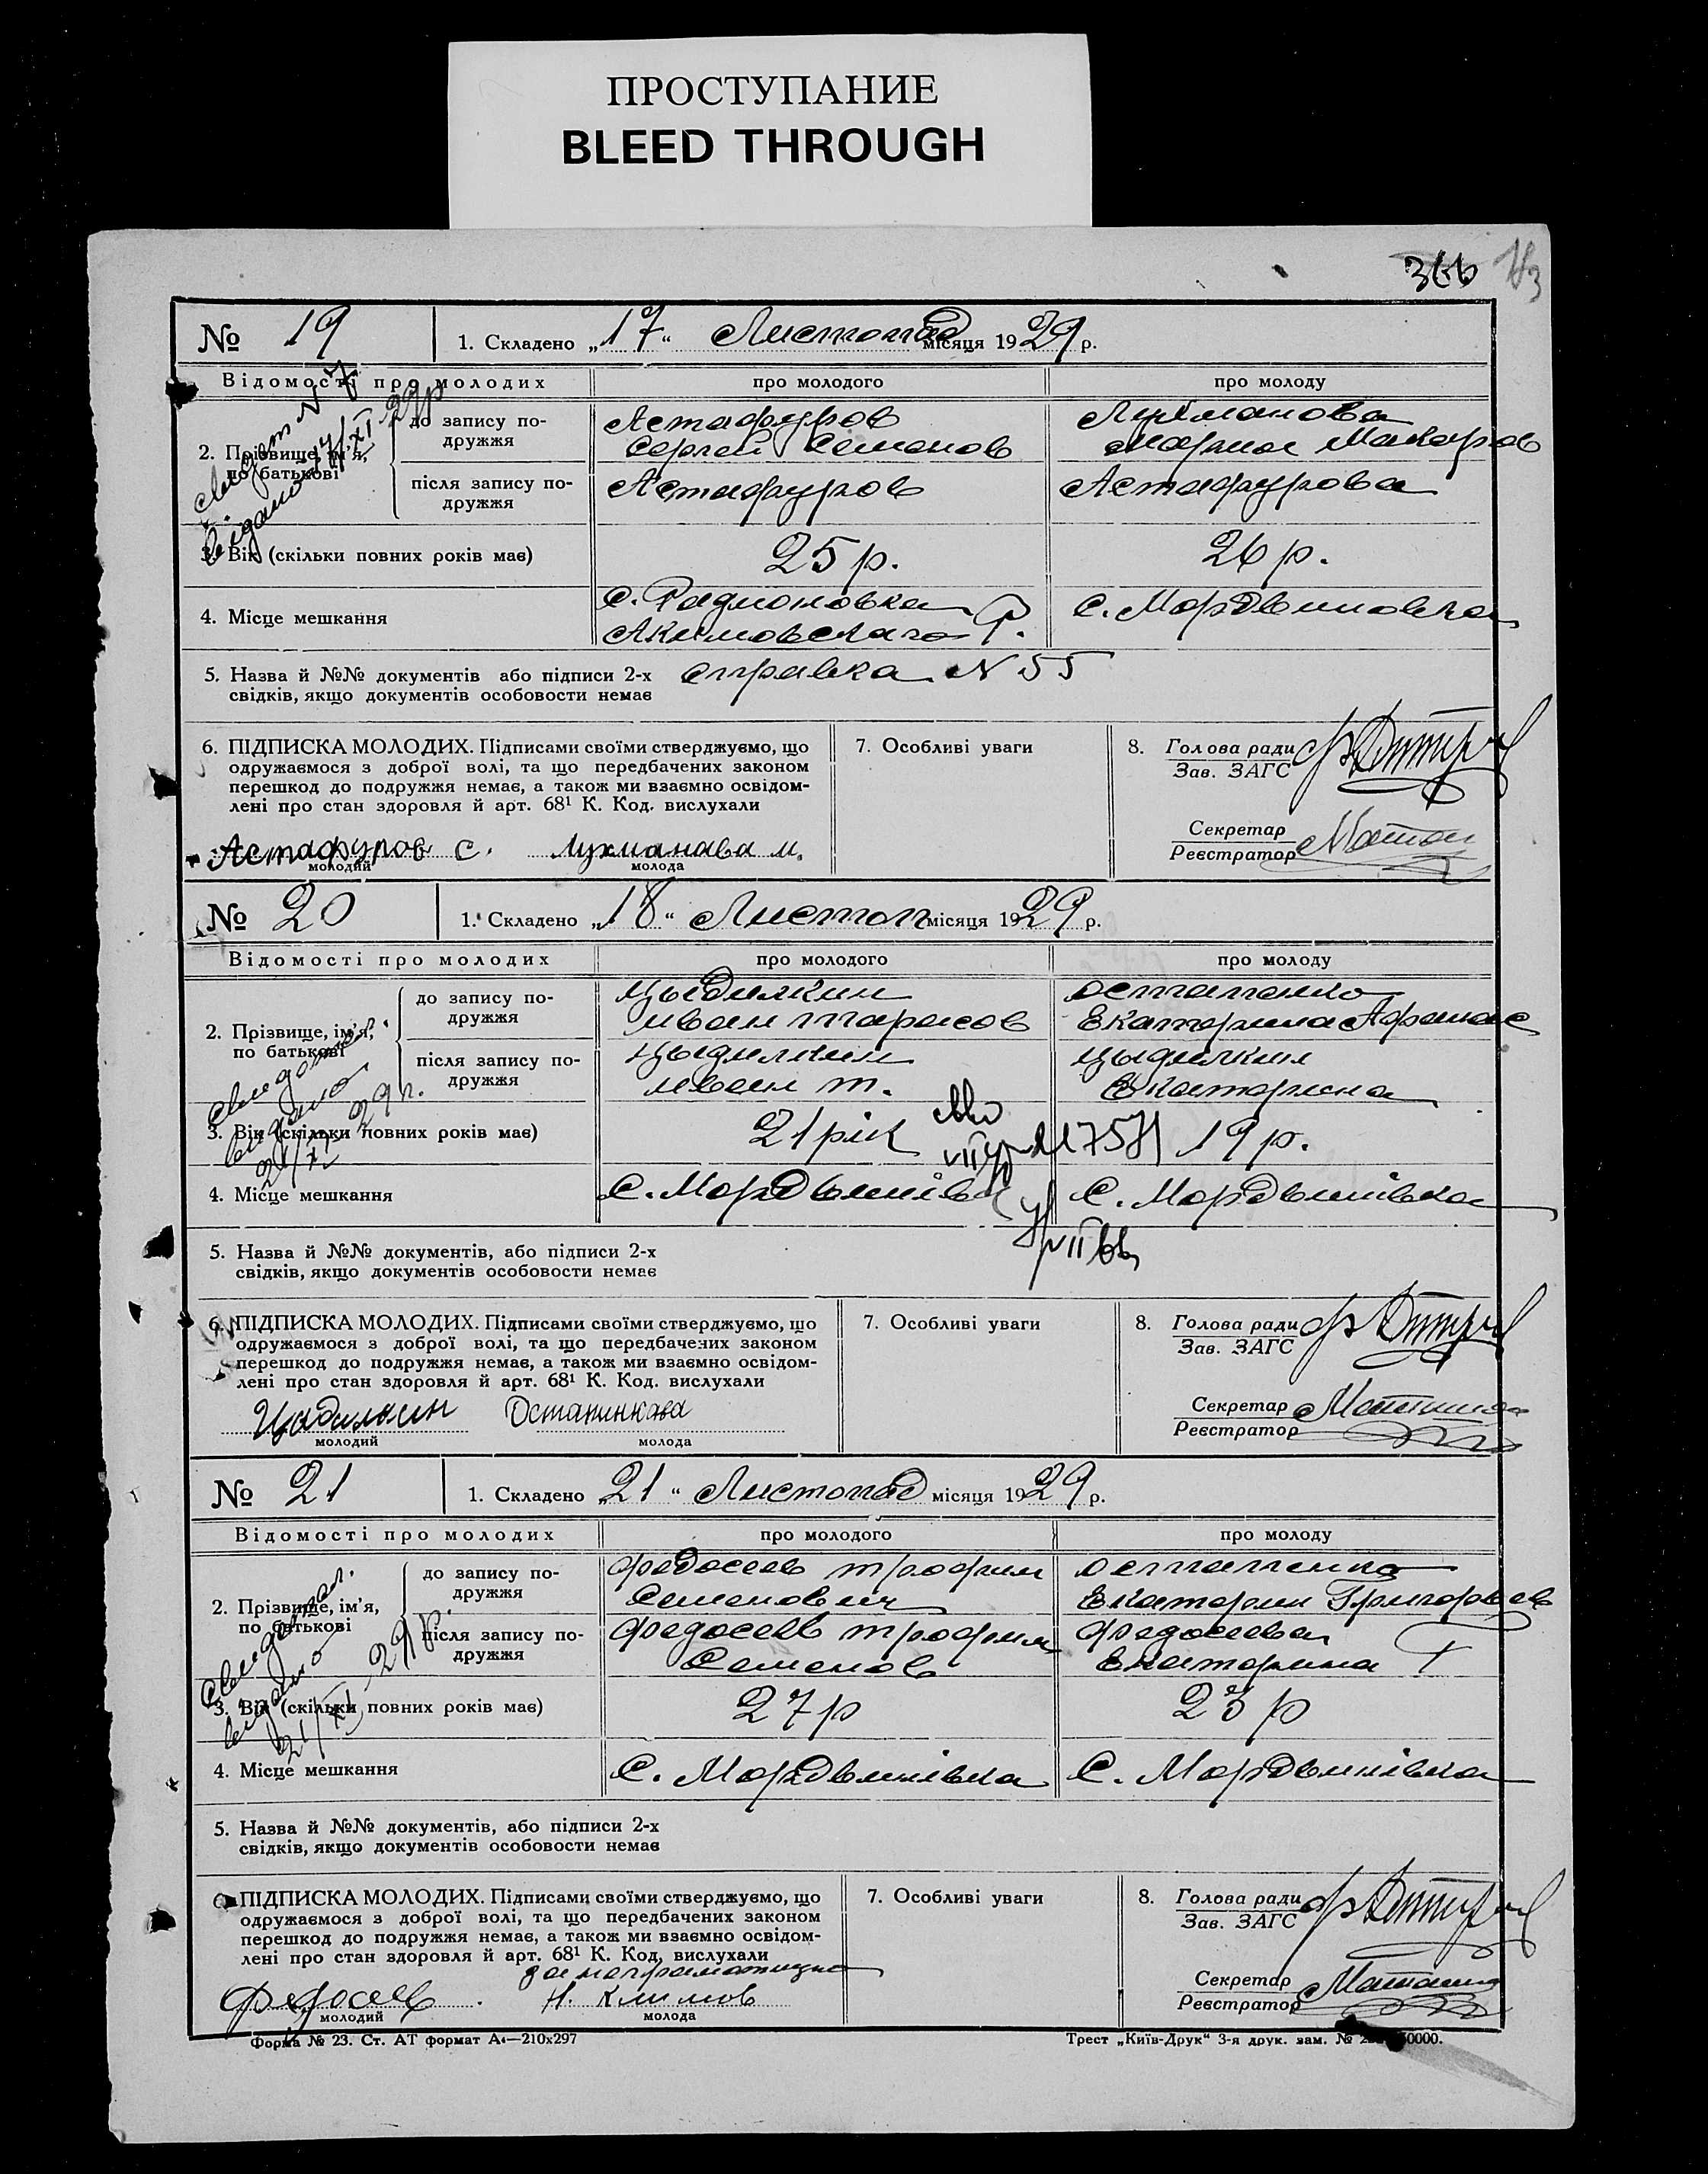 ПРОСТУПАНИЕ
BLEED THROUGH
366
№ 19 1. Складено „17“ Листопад місяця 1929 р.
Відомості про молодих про молодого про молоду
2. Прізвище, ім’я, по батькові
до запису подружжя
Астафуров Сергей Семенов
Лухманова Мария Макаров
після запису по-
дружжя
Астафуров Астафурова
видано 17/XI-29р
3. Вік (скільки повних років має) 25 р. 26 р.
4. Місце мешкання
с. Радионовка
Акимовскаго Р.
с. Мордвиновка
5. Назва й №№ документів або підписи 2-х справка N 55
свідків, якщо документів особовости немає
6. ПІДПИСКА МОЛОДИХ. Підписами своїми стверджуємо, що
одружаємося з доброї волі, та що передбачених законом
перешкод до подружжя немає, а також ми взаємно освідом-
лені про стан здоровля й арт. 68¹ К. Код. вислухали
Астафуров С. Лухманава М.
молодий молода
7. Особливі уваги
8. Голова ради
Зав. ЗАГС
Секретар
Реєстратор
№ 20 1. Складено „18“ Листоп місяця 1929 р.
Відомості про молодих про молодого про молоду
2. Прізвище, ім’я,
по батькові
до запису по-
дружжя
Цыдилкин
Иван Тарасов
Остапенко
Екатерина Афанас
після запису по-
дружжя
Цыдилкин
Иван Т.
Цыдилкин
Екатерина
видано
21/XI 29 р.
3. Вік (скільки повних років має) 21 рік 19 р.
4. Місце мешкання с. Мордвинівка с. Мордвинівка
5. Назва й №№ документів, або підписи 2-х
свідків, якщо документів особовости немає
6. ПІДПИСКА МОЛОДИХ. Підписами своїми стверджуємо, що
одружаємося з доброї волі, та що передбачених законом
перешкод до подружжя немає, а також ми взаємно освідом-
лені про стан здоровля й арт. 68¹ К. Код. вислухали
молодий молода
7. Особливі уваги
8. Голова ради
Зав. ЗАГС
Секретар
Реєстратор
№ 21 1. Складено „21“ Листопад місяця 1929 р.
Відомості про молодих про молодого про молоду
2. Прізвище, ім’я,
по батькові
до запису по-
дружжя
Федосеев Трофим
Семенович
Остапенко
Екатерин Григорьев
після запису по-
дружжя
Федосеев Трофим
Семенов
Федосеева
Екатерина Г
видано
21/XI 29 р.
3. Вік (скільки повних років має) 27 р 23 р
4. Місце мешкання с. Мордвинівка с. Мордвинівка
5. Назва й №№ документів, або підписи 2-х
свідків, якщо документів особовости немає
ПІДПИСКА МОЛОДИХ. Підписами своїми стверджуємо, що
одружаємося з доброї волі, та що передбачених законом
перешкод до подружжя немає, а також ми взаємно освідом-
лені про стан здоровля й арт. 68¹ К. Код, вислухали
Федосеев Н. Климов
молодий молода
7. Особливі уваги
8. Голова ради
Зав. ЗАГС
Секретар
Реєстратор
Форма № 23. Ст. АТ формат А₄—210х297
Трест „Київ-Друк“ 3-я друк. зам. №